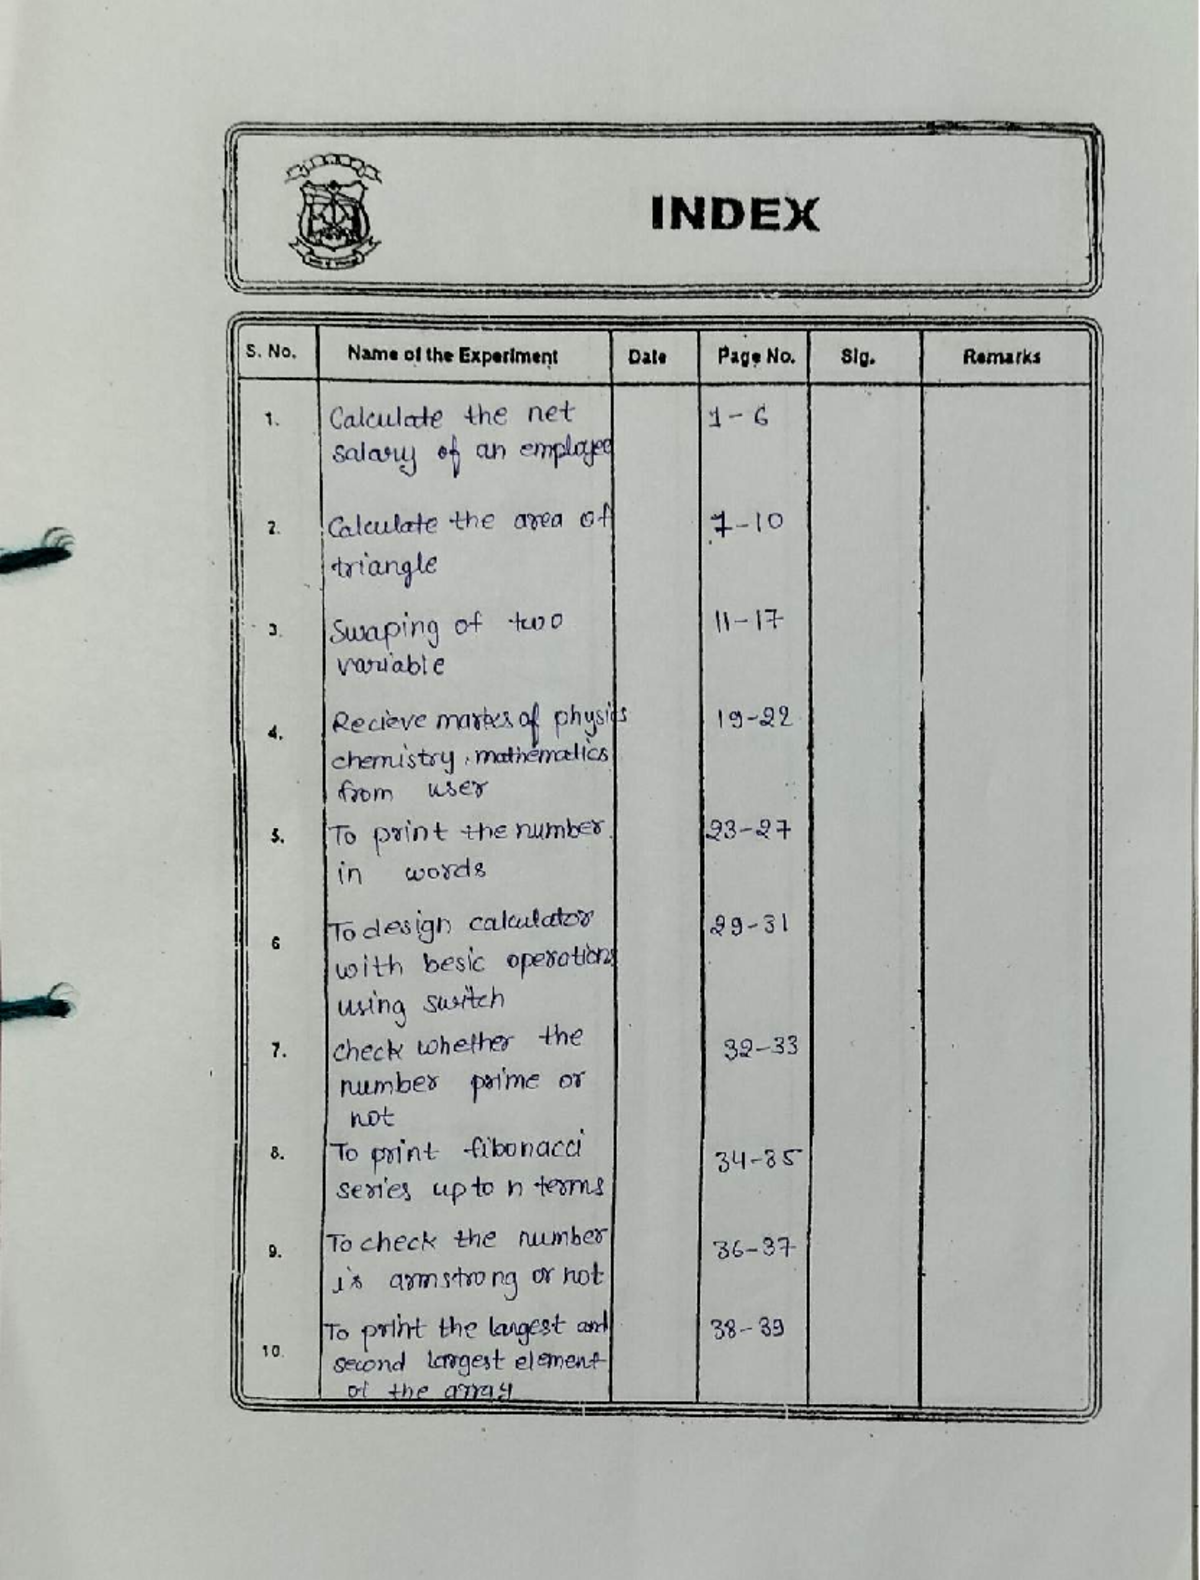 INDEX
S. No. Name of the Experiment Date Page No. Sig. Remarks
1. Calculate the net 1-6
salary of an employee
2. Calculate the area of 7-10
triangle
3. Swaping of two 11-17
variable
4. Recieve marks of physics 19-22
chemistry, mathematics
from user
5. To print the number 23-27
in words
6 To design calculator 29-31
with besic operations
using switch
7. check whether the 32-33
number prime or
not
8. To print fibonacci 34-35
series upto n terms
9. To check the number 36-37
is armstrong or not
10. To print the largest and 38-39
second largest element
of the array